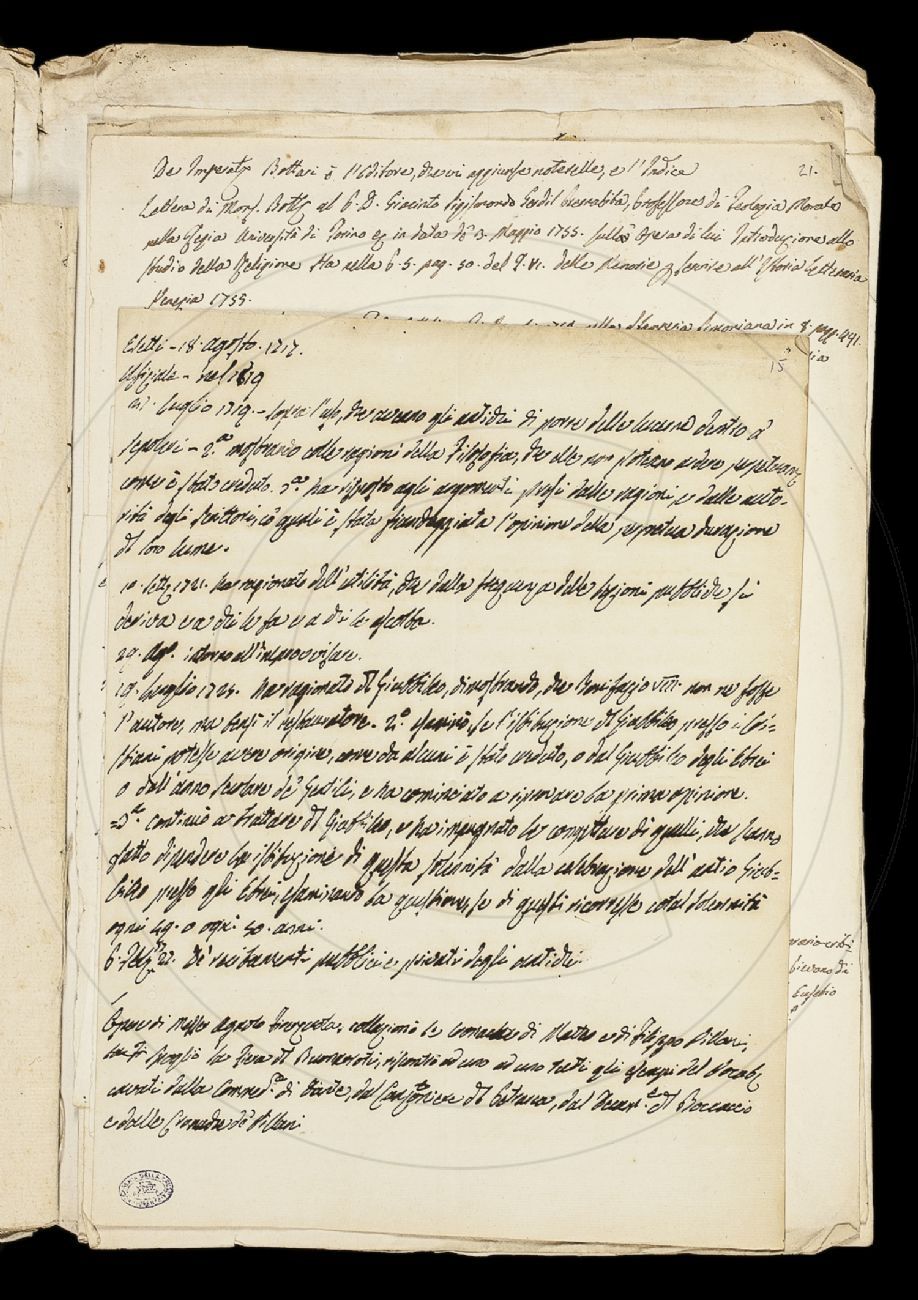 De Imperat. Bottari è l'Editore, che vi aggiunse noterelle, e l'Indice
21.
Lettera di Mons. Bott. al P. D. Giacinto Sigismondo Gerdil Bernabita, Professore di Teologia Morale
nella Regia Università di Torino in data de 3. Maggio 1755. sull' Opera di lui Introduzione allo
studio della Religione sta nella P. 5. pag. 50. del T. VI. delle Memorie p. servire all'Istoria Letteraria
Venezia 1755.
in 8. pag. 491.
15
Eletti - 18. Agosto. 1717.
Uffiziale - nel 1719
27. Luglio 1719. - sopra l'uso, che avevano gli antichi di porre delle lucerne dentro a
sepolcri - 2.° mostrando colle ragioni della Filosofia, che elle non potevano ardere perpetuam.
come è stato creduto. 3.° ha risposto agli argomenti presi dalle ragioni, e dalle auto-
rità degli scrittori, co' quali è stata fiancheggiata l'opinione della perpetua durazione
di loro lume.
10. Sett. 1721. ha ragionato dell'utilità, che dalla frequenza delle lezioni pubbliche si
deriva e a chi le fa e a chi le ascolta.
29. Ago. intorno all'improvvisare.
19. Luglio 1725. ha ragionato del Giubbileo, dimostrando, che Bonifazio VIII. non ne fosse
l'autore, ma bensì il restauratore. 2.° esaminò, se l'istituzione del Giubbileo presso i Cri-
stiani potesse avere origine, come da alcuni è stato creduto, o dal Giubbileo degli Ebrei
o dall'anno secolare de' Gentili, e ha cominciato a riprovare la prima opinione.
= 3.° continuò a trattare del Giubbileo, e ha impugnato le conjetture di quelli, che hanno
fatto dipendere la istituzione di questa solennità dalla celebrazione dell'antico Giub-
bileo presso gli Ebrei, esaminando la questione, se di questi ricorresse cotal solennità
ogni 49. o ogni 50. anni.
6. 22. De' ne' pubblici e privati degli antichi
Opere di Messer Agnolo Firenzuola, collazionò le Cronache di Matteo e di Filippo Villani,
spogliò la Fiera del Buonarroti, riscontrò ad uno ad uno tutti gli esempi del Vocab.
cavati dalla Commed. di Dante, dal Canzoniere del Petrarca, dal Decam. del Boccaccio
e dalle Cronache de' Villani